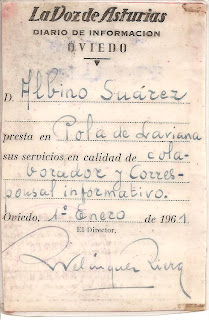 La Voz de Asturias
DIARIO DE INFORMACION
OVIEDO
D. Albino Suárez
presta en Pola de Laviana
sus servicios en calidad de cola-
borador y Corres-
ponsal informativo.
Oviedo, 1º Enero de 1961.
El Director,